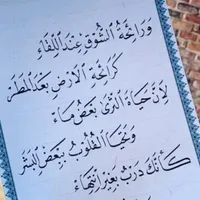 وَرَائِحَةُ الشَّوْقِ عِنْدَ اللِّقَاءِ
كَرَائِحَةِ الْأَرْضِ بَعْدَ الْمَطَرْ
لِأَنَّ حَيَاةَ الثَّرَى بَعْضُ مَاءٍ
وَتَحْيَا الْقُلُوبُ بِبَعْضِ الْبَشَرْ
كَأَنَّكَ دَرْبٌ بِغَيْرِ انْتِهَاءٍ